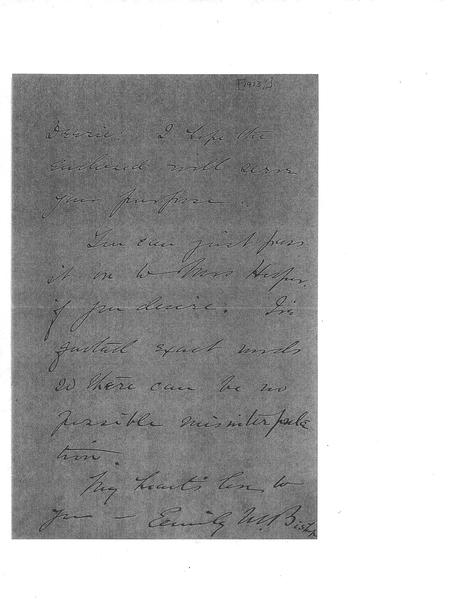 [1913?]
Dearie: I hope the
enclosed will serve
your purpose.
You can just pass
it on to Mrs Harper,
if you desire. I've
quoted exact words
so there can be no
possible misinterpreta
tion.
My heart's love to
you – Emily M. Bishop